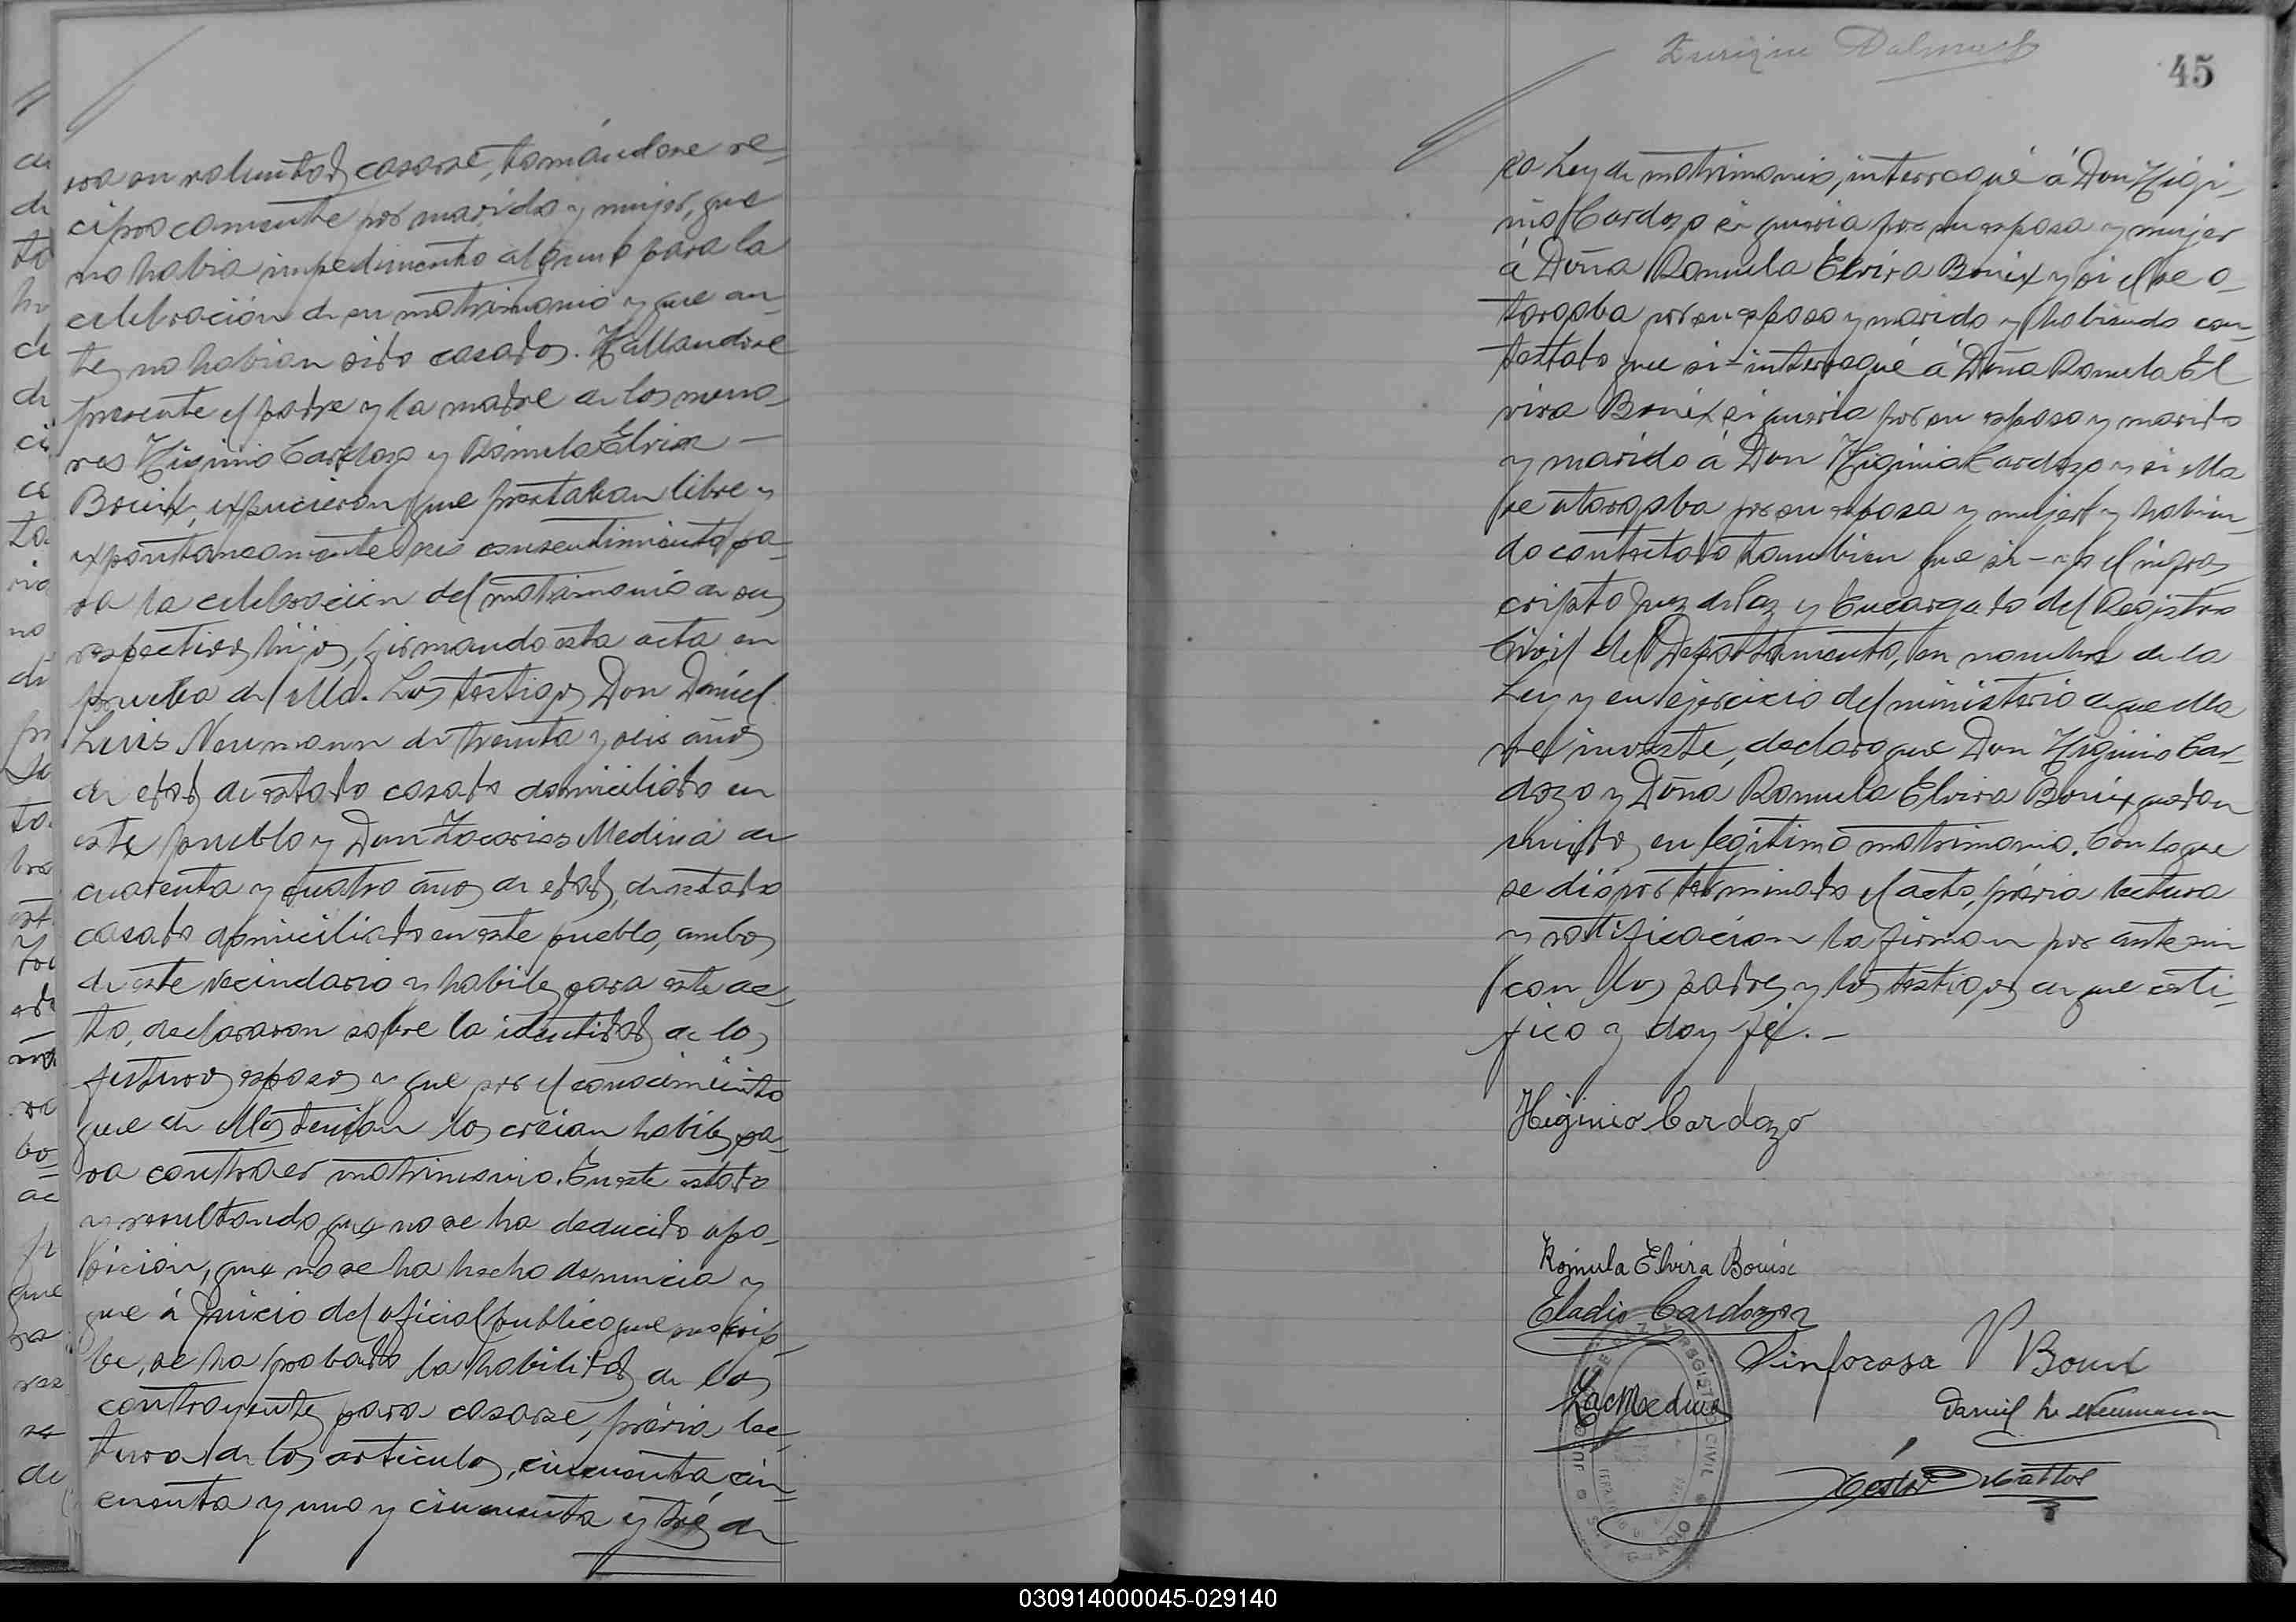 era su voluntad casarse, tomándose re-
ciprocamente por marido y mujer, que
no habia impedimento alguno para la
celebración de su matrimonio y que an-
tes no habian sido casados. Hallandose
presente el padre y la madre de los meno-
res Higinio Cardozo y Rómula Elvira —
Bouix, expucieron que prestaban libre y
expontaneamente sus consentimiento pa-
ra la celebracion del matrimonio de sus
respectivos hijos, firmando esta acta en
prueba de ella. Los testigos Don Daniel
Luis Neumann de treinta y seis años
de edad de estado casado domiciliado en
este pueblo y Don Zacarias Medina de
cuarenta y cuatro años de edad, de estado
casado domiciliado en este pueblo, ambos
de este vecindario y habiles para este ac-
to, declararon sobre la identidad de los
futuros esposos y que por el conocimiento
que de ellos tenian los creian habiles pa-
ra contraer matrimonio. En este estado
y resultando que no se ha deducido opo-
sicion, que no se ha hecho denuncia y
que á juicio del oficial publico que suscri-
be, se ha probado la habilidad de los
contrayentes para casarse, prévia lec-
tura de los articulos, cincuenta, cin-
cuenta y uno y cincuenta y tres de
Enrique Dalmast
45
la Ley de matrimonio, interrogué á Don Higi-
nio Cardozo si queria por su esposa y mujer
á Doña Romula Elvira Bouix y si el se o-
torgaba por su esposo y marido y habiendo con-
testado que si - interrogué á Doña Romula El
vira Bouix si queria por su esposo y marido
y marido á Don Higinio Cardozo y si ella
se otorgaba por su esposa y mujer y habien-
do contestado tambien que si - yo el infras-
cripto Juez de Paz y Encargado del Registro
Civil del Departamento, en nombre de la
Ley y en ejercicio del ministerio de que ella
me inviste, declaro que Don Higinio Car-
dozo y Doña Romula Elvira Bouix quedan
unidos en legítimo matrimonio. Con lo que
se dió por terminado el acto, prévia lectura
y ratificacion la firman por ante mi
con los padres y los testigos de que certi-
fico y doy fé. —
Higinio Cardozo
Rómula Elvira Bouix
Eladio Cardozo
Sinforosa V Bouix
Zac Medina
Daniel L. Neumann
REGISTRO CIVIL
030914000045-029140